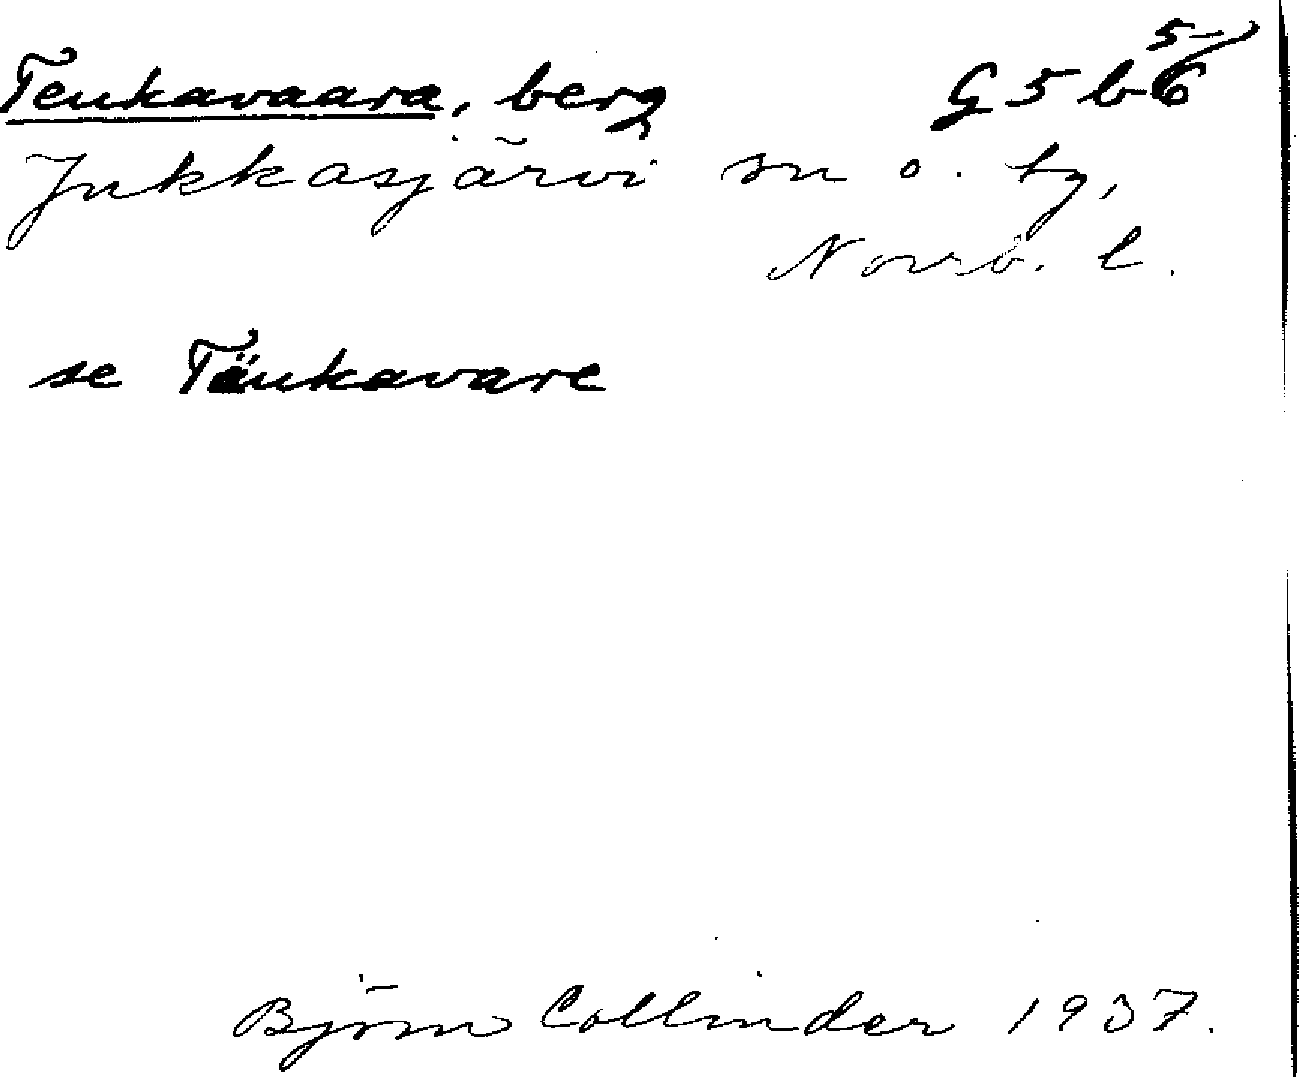 Teukavaara, berg G5b 5/6
Jukkasjärvi sn o. tg,
Norrb. l.
se Täukavare
Björn Collinder 1937.